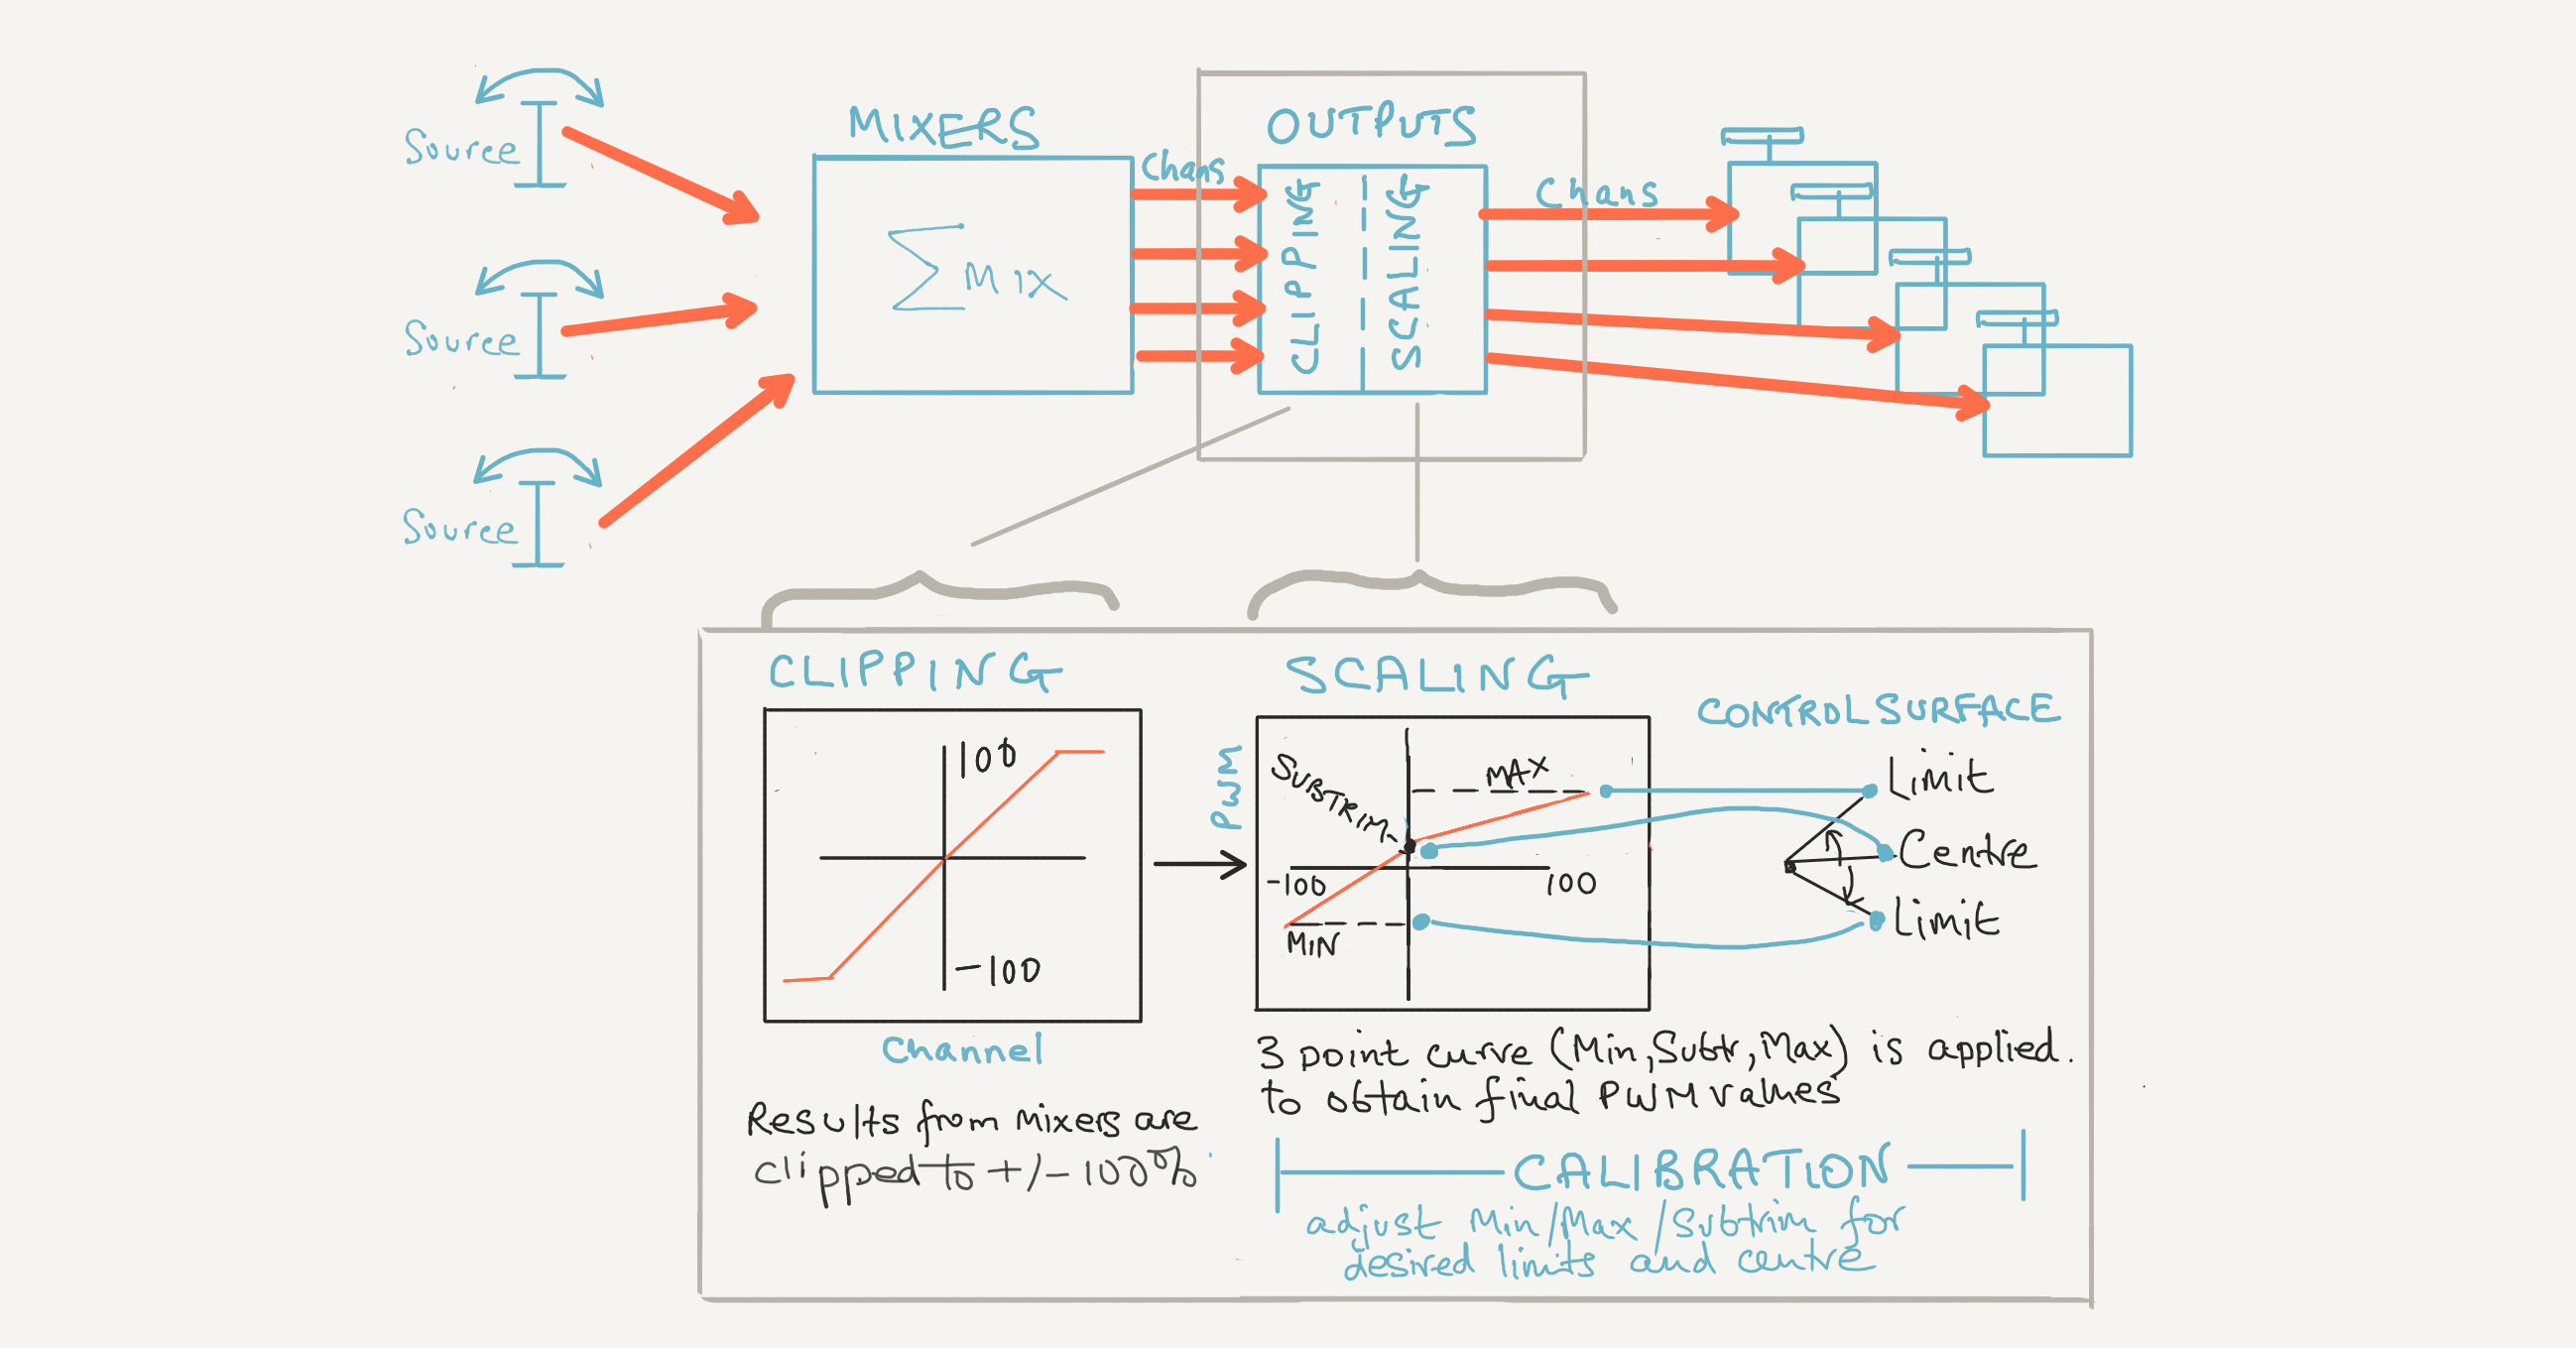 Source
Source
Source
MIXERS
∑ MIX
Chans
OUTPUTS
CLIPPING
SCALING
Chans
CLIPPING
100
-100
Channel
Results from mixers are
clipped to +/- 100%
SCALING
PWM
SUBTRIM
MAX
-100
100
MIN
CONTROL SURFACE
Limit
Centre
Limit
3 point curve (Min, Subtr, Max) is applied.
to obtain final PWM values
CALIBRATION
adjust Min/Max/Subtrim for
desired limits and centre